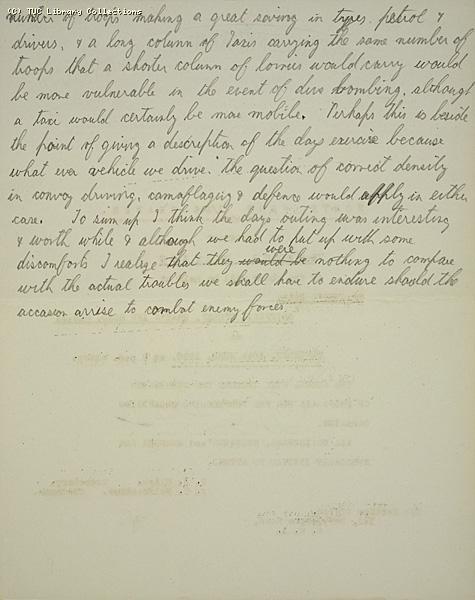 (C) TUC Library Collections
number of troops making a great saving in tyres, petrol &
drivers, & a long column of Taxis carrying the same number of
troops that a shorter column of lorries would carry would
be more vulnerable in the event of dive bombing, although
a taxi would certainly be more mobile. Perhaps this is beside
the point of giving a description of the days exercise because
what ever vehicle we drive. The question of correct density
in convoy driving, camaflaging & defence would apply in either
case. To sum up I think the days outing was interesting
& worth while & although we had to put up with some
discomforts I realize that they would be were nothing to compare
with the actual troubles we shall have to endure should the
accasion arrise to combat enemy forces.